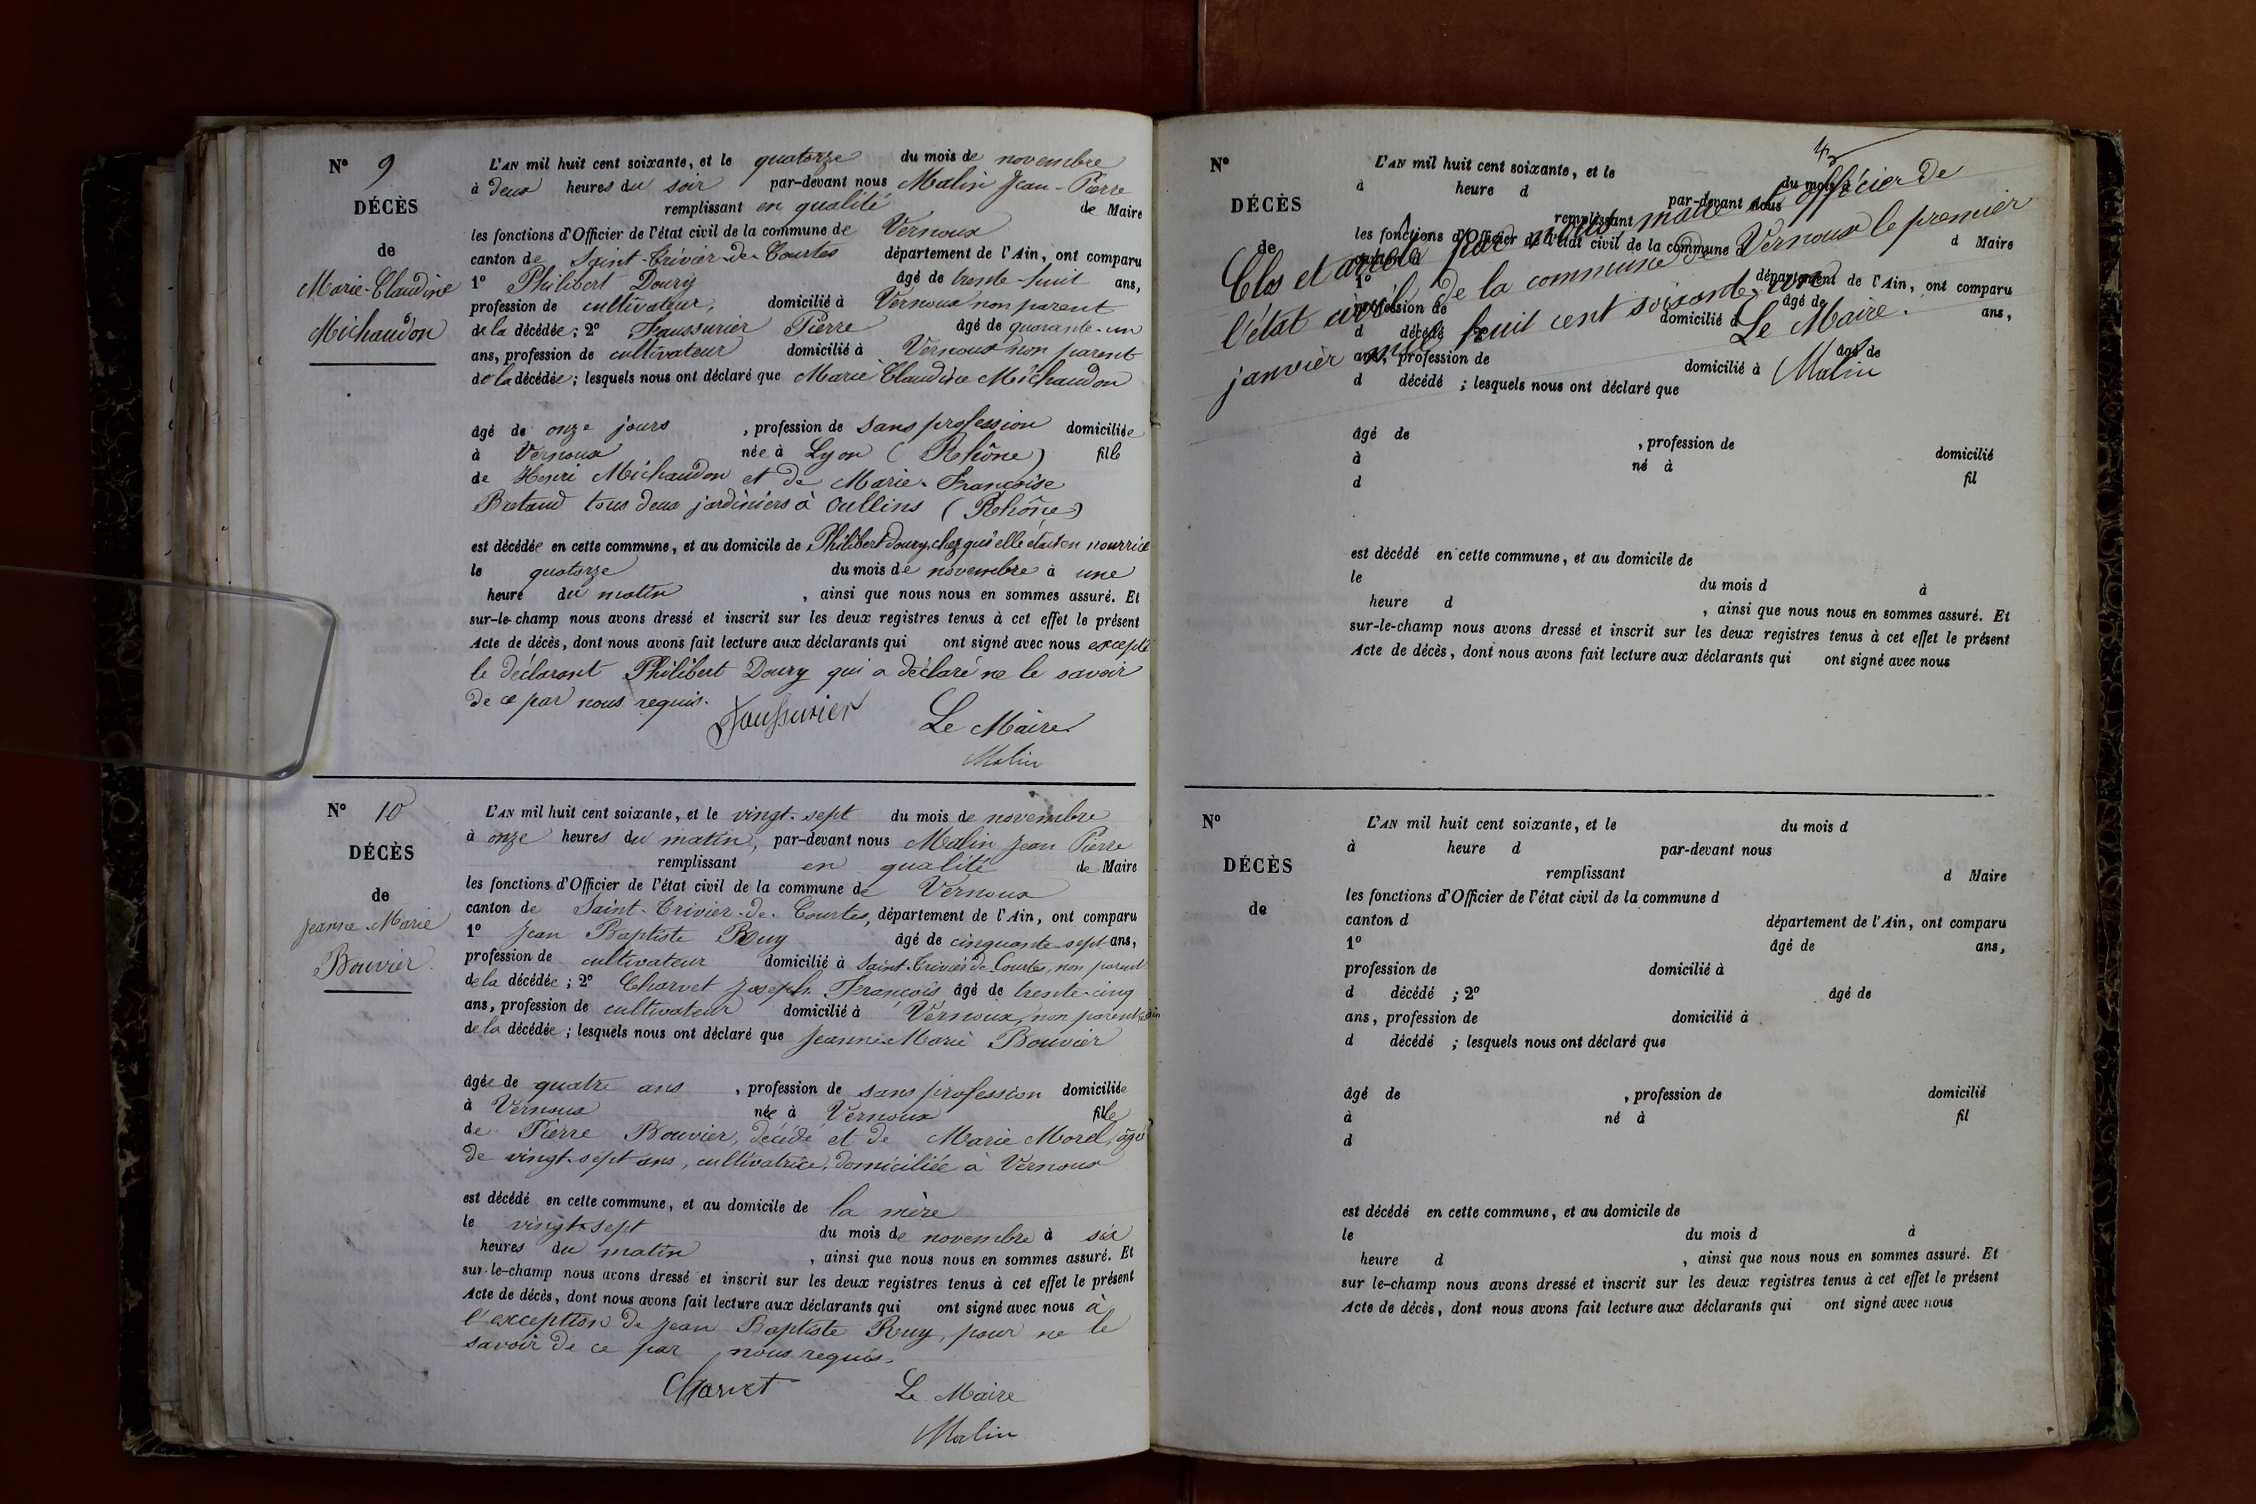 N° 9
DÉCÈS
de
Marie-Claudine
Michaudon
L'AN mil huit cent soixante, et le quatorze du mois de novembre
à deux heures du soir par-devant nous Malin Jean-Pierre
remplissant en qualité de Maire
les fonctions d'Officier de l'état civil de la commune de Vernoux
canton de Saint-Trivier-de-Courtes département de l'Ain, ont comparu
1° Philibert Doury âgé de trente-huit ans,
profession de cultivateur, domicilié à Vernoux non parent
de la décédée; 2° Faussurier Pierre âgé de quarante-un
ans, profession de cultivateur domicilié à Vernoux non parent
de la décédée; lesquels nous ont déclaré que Marie Claudine Michaudon
âgé de onze jours, profession de sans profession domiciliée
à Vernoux née à Lyon (Rhône) fille
de Henri Michaudon et de Marie-Françoise
Bretaud tous deux jardiniers à Oullins (Rhône)
est décédée en cette commune, et au domicile de Philibert Doury, chez qui elle était en nourrice
le quatorze du mois de novembre à une
heure du matin, ainsi que nous nous en sommes assuré. Et
sur-le-champ nous avons dressé et inscrit sur les deux registres tenus à cet effet le présent
Acte de décès, dont nous avons fait lecture aux déclarants qui ont signé avec nous excepté
le déclarant Philibert Doury qui a déclaré ne le savoir
de ce par nous requis.
Faussurier Le Maire
Malin
N° 10
DÉCÈS
de
Jeanne-Marie
Bouvier
L'AN mil huit cent soixante, et le vingt-sept du mois de novembre
à onze heures du matin, par-devant nous Malin Jean Pierre
remplissant en qualité de Maire
les fonctions d'Officier de l'état civil de la commune de Vernoux
canton de Saint-Trivier-de-Courtes, département de l'Ain, ont comparu
1° Jean Baptiste Ruy âgé de cinquante-sept ans,
profession de cultivateur domicilié à Saint-Trivier de Courtes, non parent
de la décédée; 2° Charvet Joseph François âgé de trente-cinq
ans, profession de cultivateur domicilié à Vernoux, non parent
de la décédée; lesquels nous ont déclaré que Jeanne-Marie Bouvier
âgée de quatre ans, profession de sans profession domiciliée
à Vernoux née à Vernoux fille
de Pierre Bouvier, décédé et de Marie Morel, âgé
de vingt-sept ans, cultivatrice, domiciliée à Vernoux
est décédé en cette commune, et au domicile de la mère
le vingt-sept du mois de novembre à six
heures du matin, ainsi que nous nous en sommes assuré. Et
sur-le-champ nous avons dressé et inscrit sur les deux registres tenus à cet effet le présent
Acte de décès, dont nous avons fait lecture aux déclarants qui ont signé avec nous à
l'exception de Jean Baptiste Ruy, pour ne le
savoir de ce par nous requis.
Charvet Le Maire
Malin
N°
DÉCÈS
de
L'AN mil huit cent soixante, et le du mois d
à heure d par-devant nous
remplissant d Maire
les fonctions d'Officier de l'état civil de la commune d
canton d département de l'Ain, ont comparu
1° âgé de ans,
profession de domicilié à
d décédé ; 2° âgé de
ans, profession de domicilié à
d décédé ; lesquels nous ont déclaré que
Clos et arrêté par nous maire et officier de
l'état civil de la commune de Vernoux le premier
janvier mil huit cent soixante-un
Le Maire.
Malin
âgé de , profession de domicilié
à né à fil
d
est décédé en cette commune, et au domicile de
le du mois d à
heure d , ainsi que nous nous en sommes assuré. Et
sur-le-champ nous avons dressé et inscrit sur les deux registres tenus à cet effet le présent
Acte de décès, dont nous avons fait lecture aux déclarants qui ont signé avec nous
N°
DÉCÈS
de
L'AN mil huit cent soixante, et le du mois d
à heure d par-devant nous
remplissant d Maire
les fonctions d'Officier de l'état civil de la commune d
canton d département de l'Ain, ont comparu
1° âgé de ans,
profession de domicilié à
d décédé ; 2° âgé de
ans, profession de domicilié à
d décédé ; lesquels nous ont déclaré que
âgé de , profession de domicilié
à né à fil
d
est décédé en cette commune, et au domicile de
le du mois d à
heure d , ainsi que nous nous en sommes assuré. Et
sur le-champ nous avons dressé et inscrit sur les deux registres tenus à cet effet le présent
Acte de décès, dont nous avons fait lecture aux déclarants qui ont signé avec nous